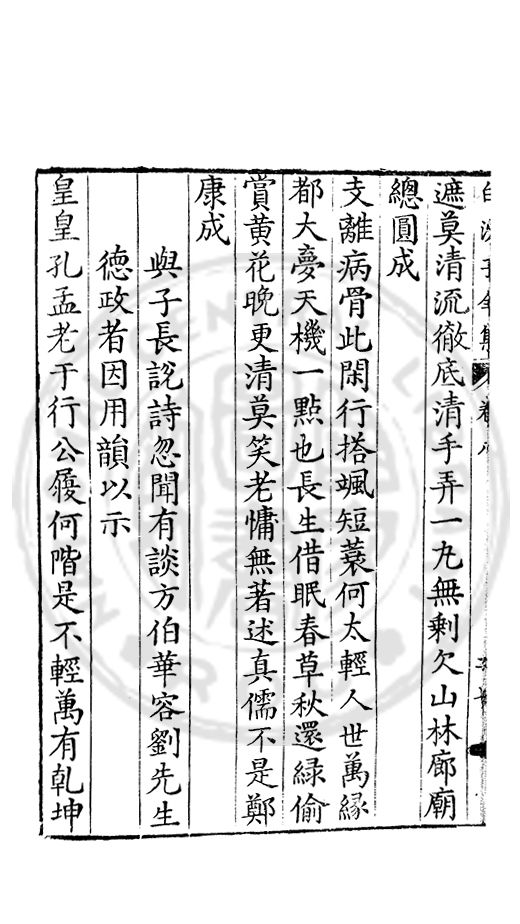 白沙子全集 卷八
遮莫清流徹底清手弄一丸無剩欠山林廊廟
總圓成
支離病骨此閑行搭颯短蓑何太輕人世萬縁
都大夢天機一點也長生借眠春草秋還緑偷
賞黄花晚更清莫笑老慵無著述真儒不是鄭
康成
與子長說詩忽聞有談方伯華容劉先生
德政者因用韻以示
皇皇孔孟老于行公履何階是不輕萬有乾坤